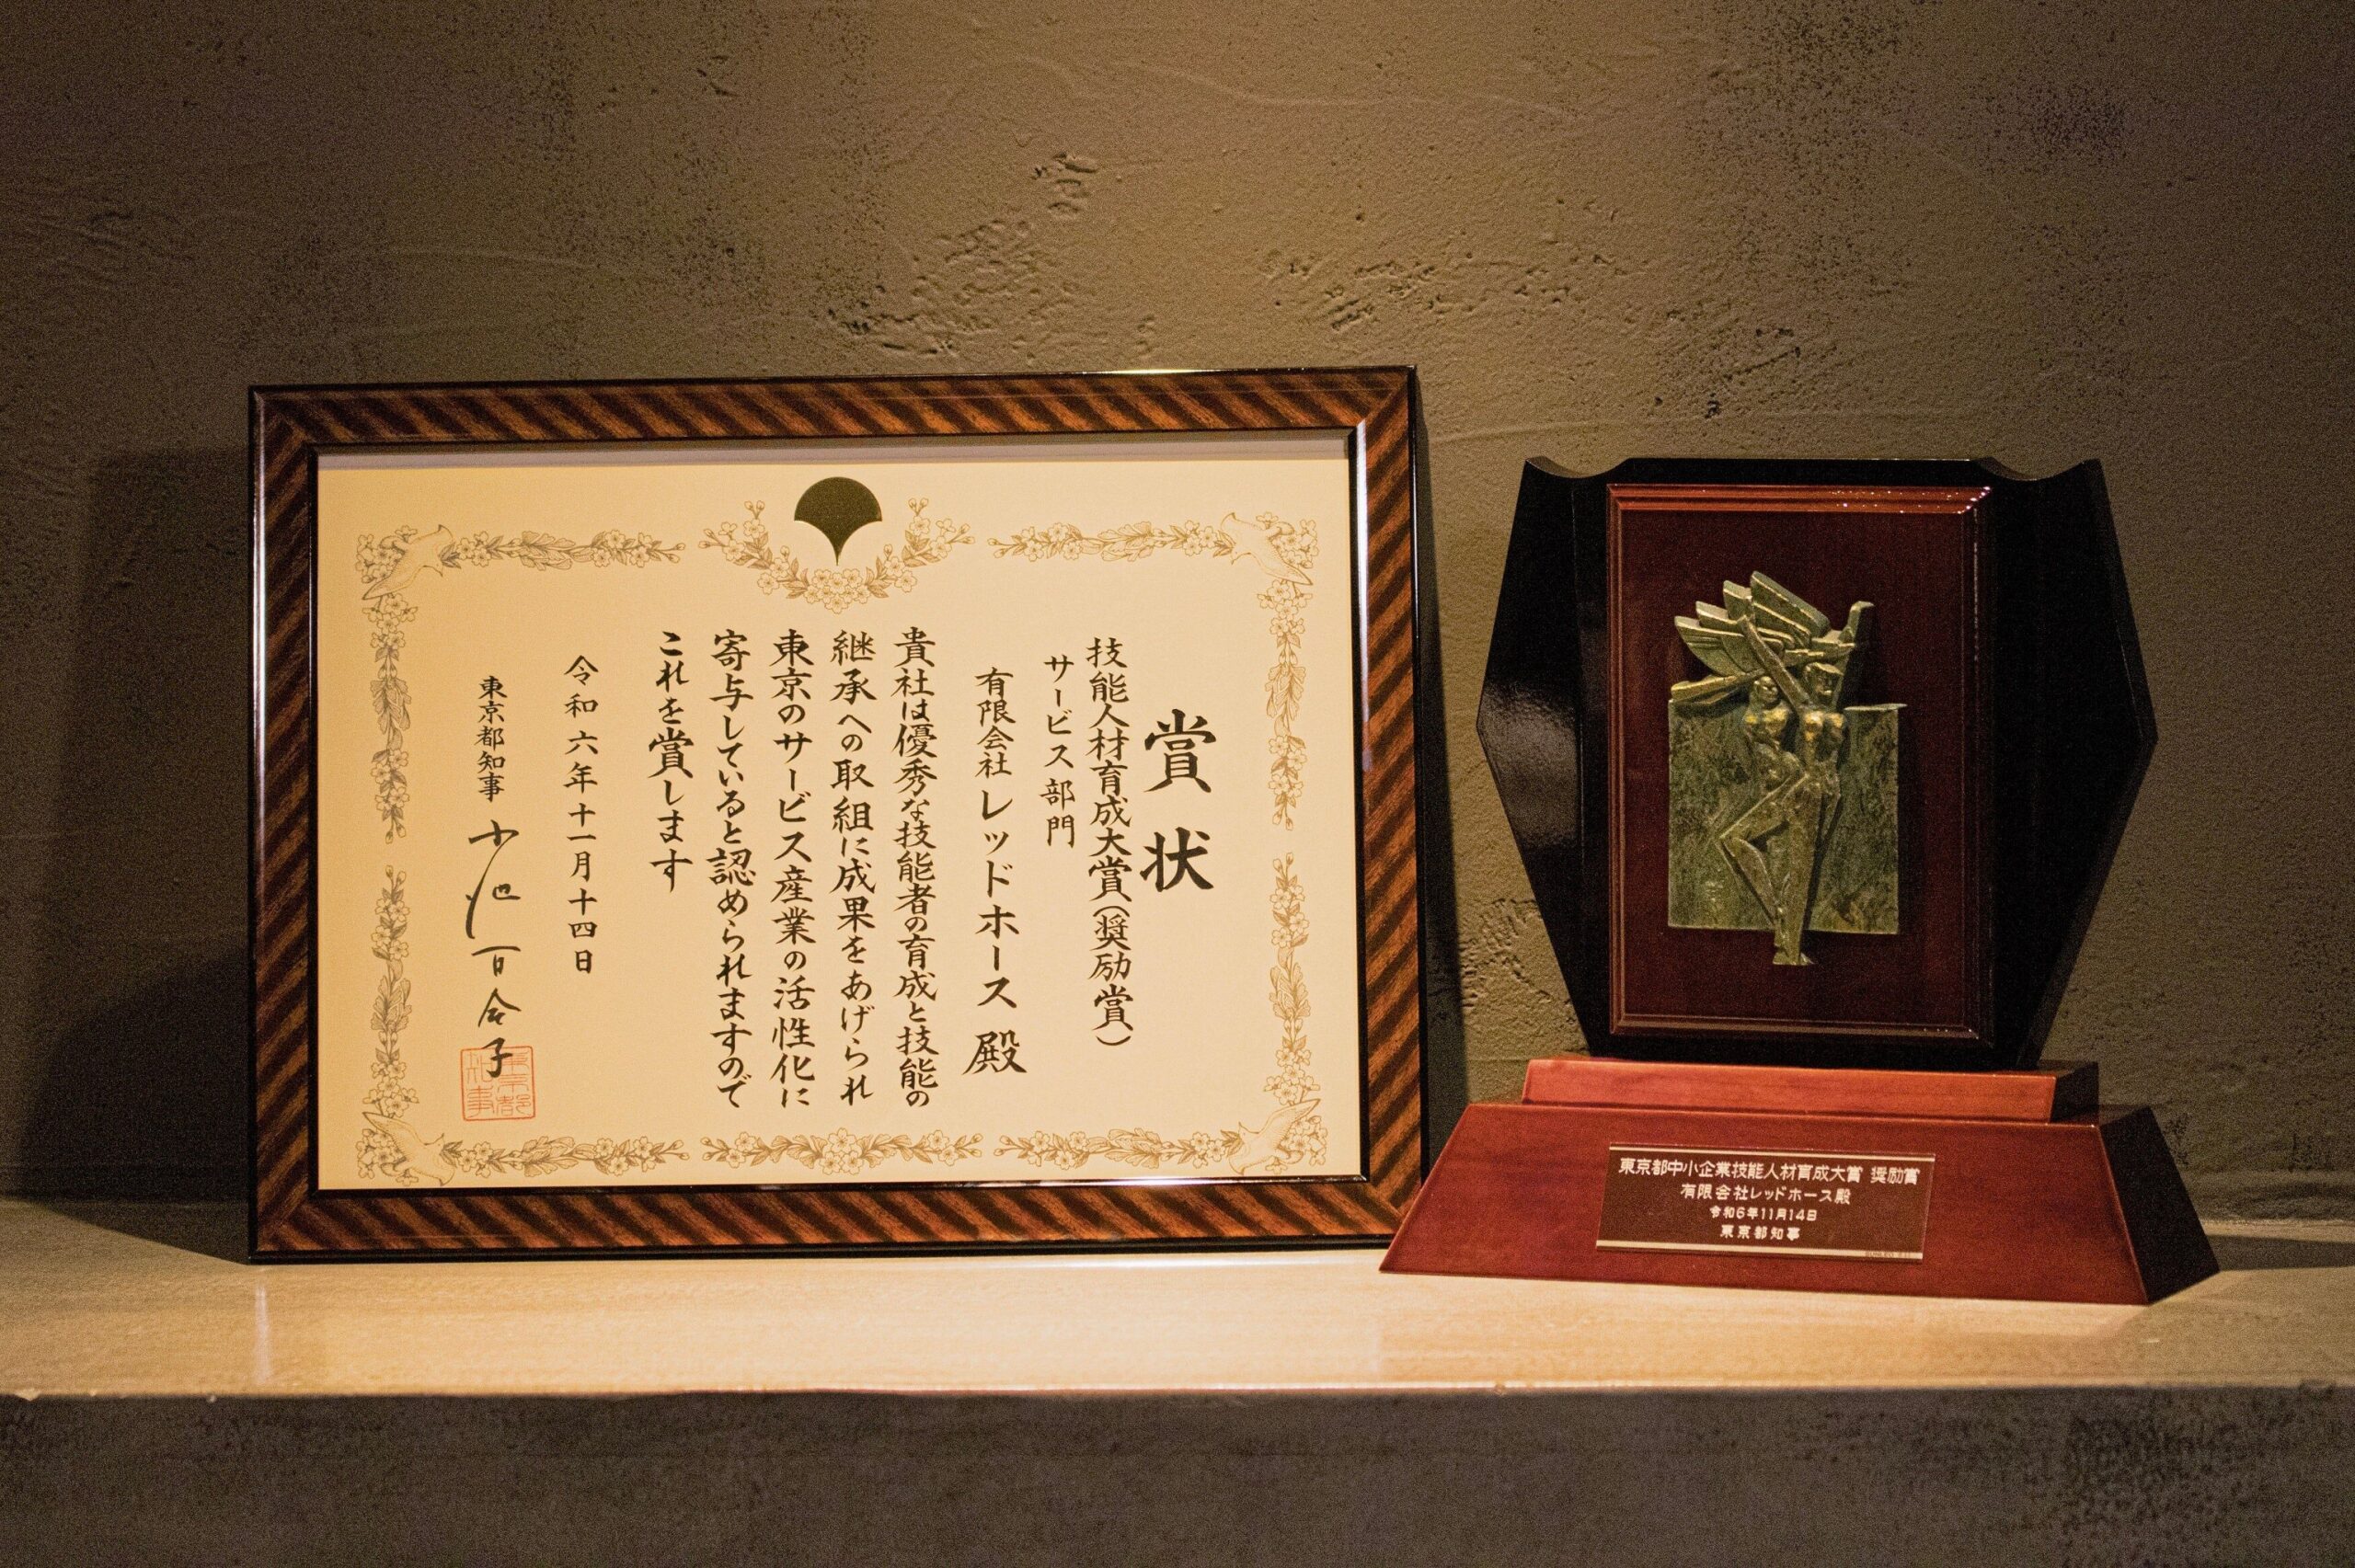 賞状
技能人材育成大賞（奨励賞）
サービス部門
有限会社レッドホース殿
貴社は優秀な技能者の育成と技能の
継承への取組に成果をあげられ
東京のサービス産業の活性化に
寄与していると認められますので
これを賞します
令和六年十一月十四日
東京都知事 小池百合子
東京都知事
東京都中小企業技能人材育成大賞 奨励賞
有限会社レッドホース殿
令和6年11月14日
東京都知事